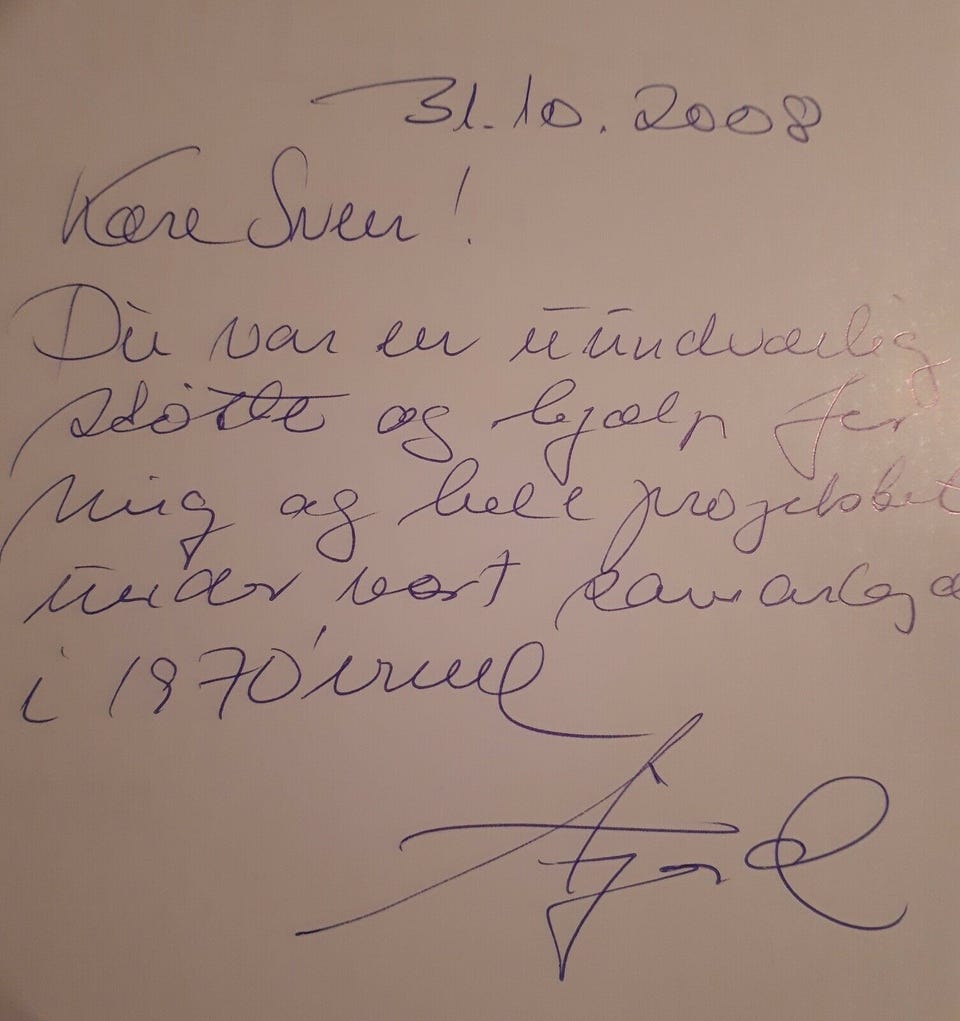 31.10.2008
Kære Sven!
Du var en uundværlig
støtte og hjælp for
mig og hele projektet
under vort samarbejd
i 1970'erne